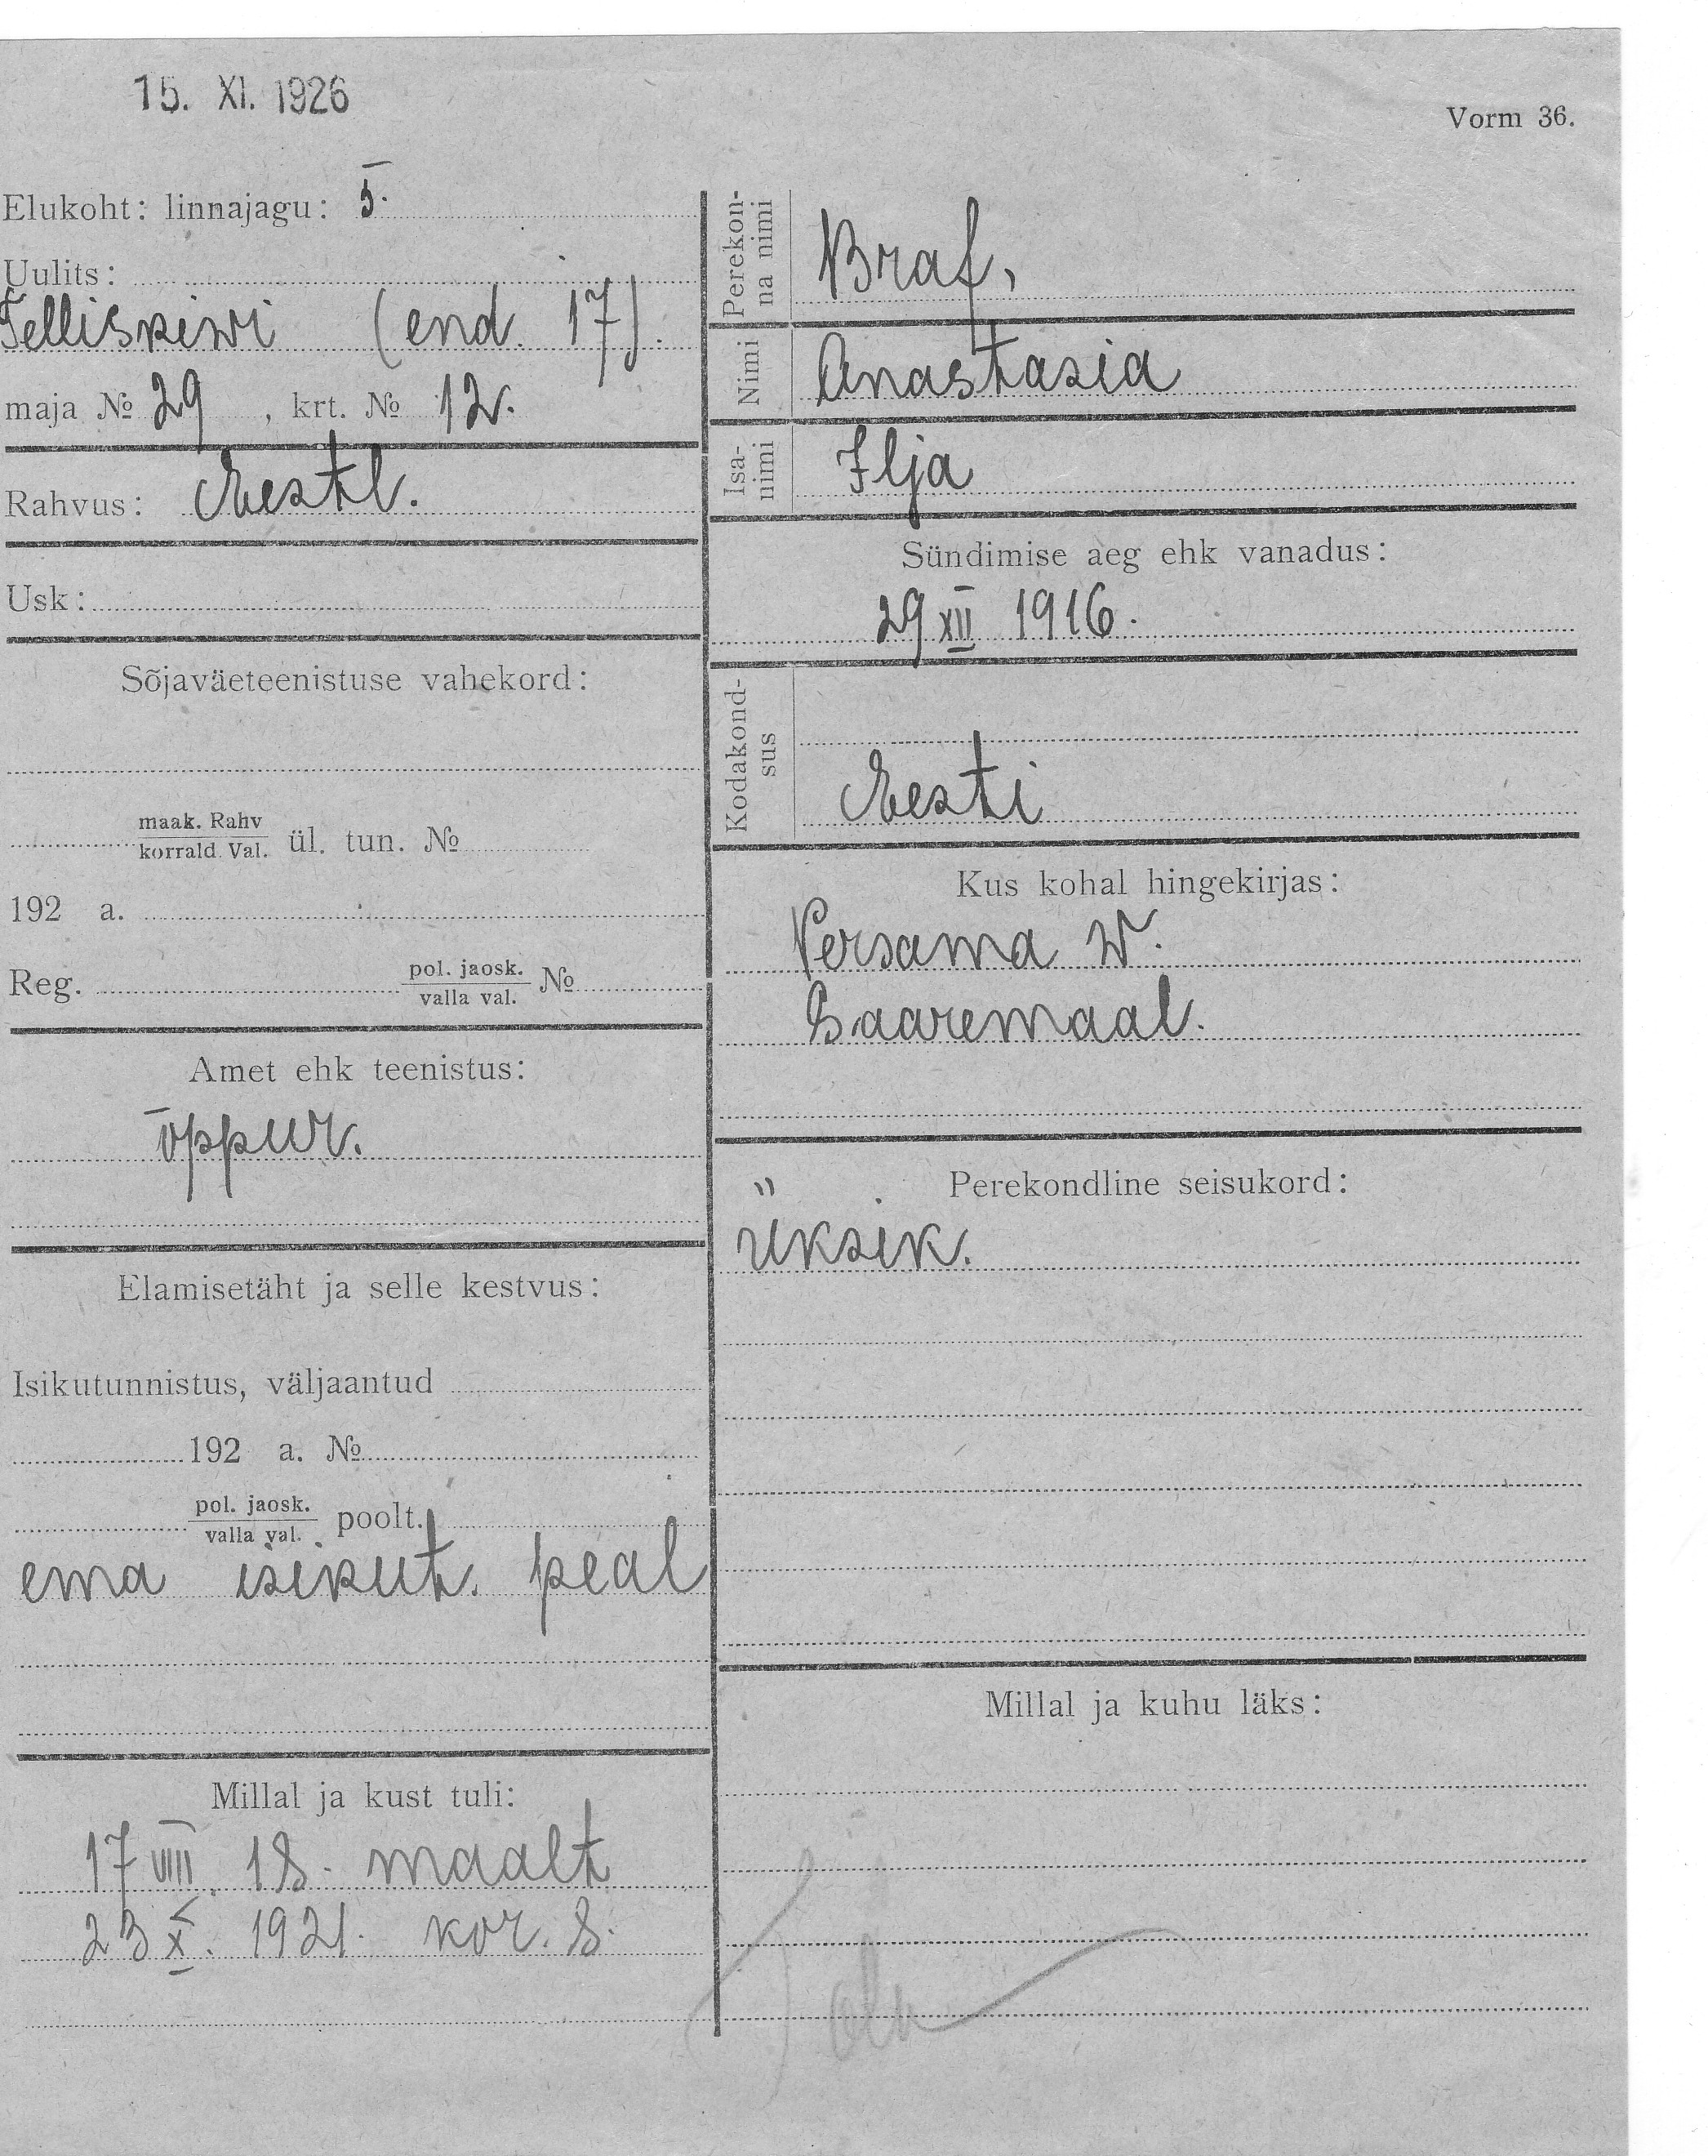 15. XI. 1926
Vorm 36.
Elukoht: linnajagu: 5.
Uulits:
Telliskiwi (end. 17).
maja № 29 , krt. № 12.
Rahvus: Eestl.
Usk:
Sõjaväeteenistuse vahekord:
maak. Rahv
korrald. Val. ül. tun. №
192 a.
Reg. pol. jaosk.
valla val. №
Amet ehk teenistus:
õppur.
Elamisetäht ja selle kestvus:
Isikutunnistus, väljaantud
192 a. №
pol. jaosk.
valla val. poolt.
ema isikut. peal
Millal ja kust tuli:
17 VIII. 18. maalt
23 X. 1921. kor. 8.
Perekon-
na nimi
Braf,
Nimi Anastasia
Isa-
nimi
Ilja
Sündimise aeg ehk vanadus:
29 XII 1916.
Kodakond-
sus
Eesti
Kus kohal hingekirjas:
Versama W.
Saaremaal.
Perekondline seisukord:
üksik.
Millal ja kuhu läks: